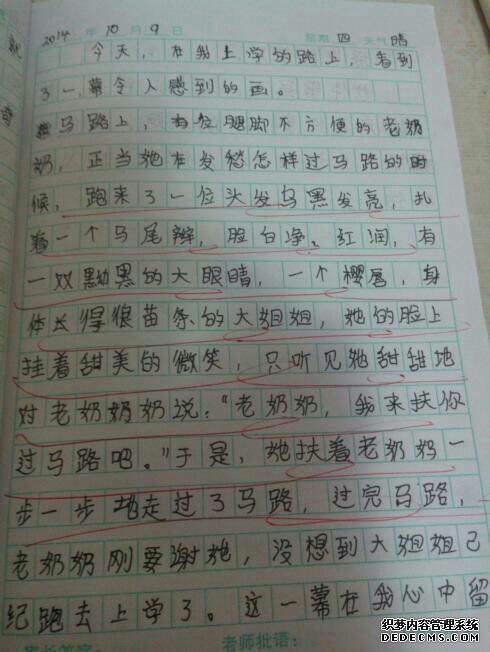 2014年10月9日 星期四 天气晴
今天，在我上学的路上，看到
了一幕令人感到的画。
马路上，有位腿脚不方便的老奶
奶，正当她在发愁怎样过马路的时
候，跑来了一位头发乌黑发亮，扎
着一个马尾辫，脸白净、红润，有
一双黝黑的大眼睛，一个樱唇，身
体长得很苗条的大姐姐，她的脸上
挂着甜美的微笑，只听见她甜甜地
对老奶奶奶说：“老奶奶，我来扶你
过马路吧。”于是，她扶着老奶奶一
步一步地走过了马路，过完马路，
老奶奶刚要谢她，没想到大姐姐己
纪跑去上学了。这一幕在我心中留
老师批语：
内容管理系统
DEDECMS.COM